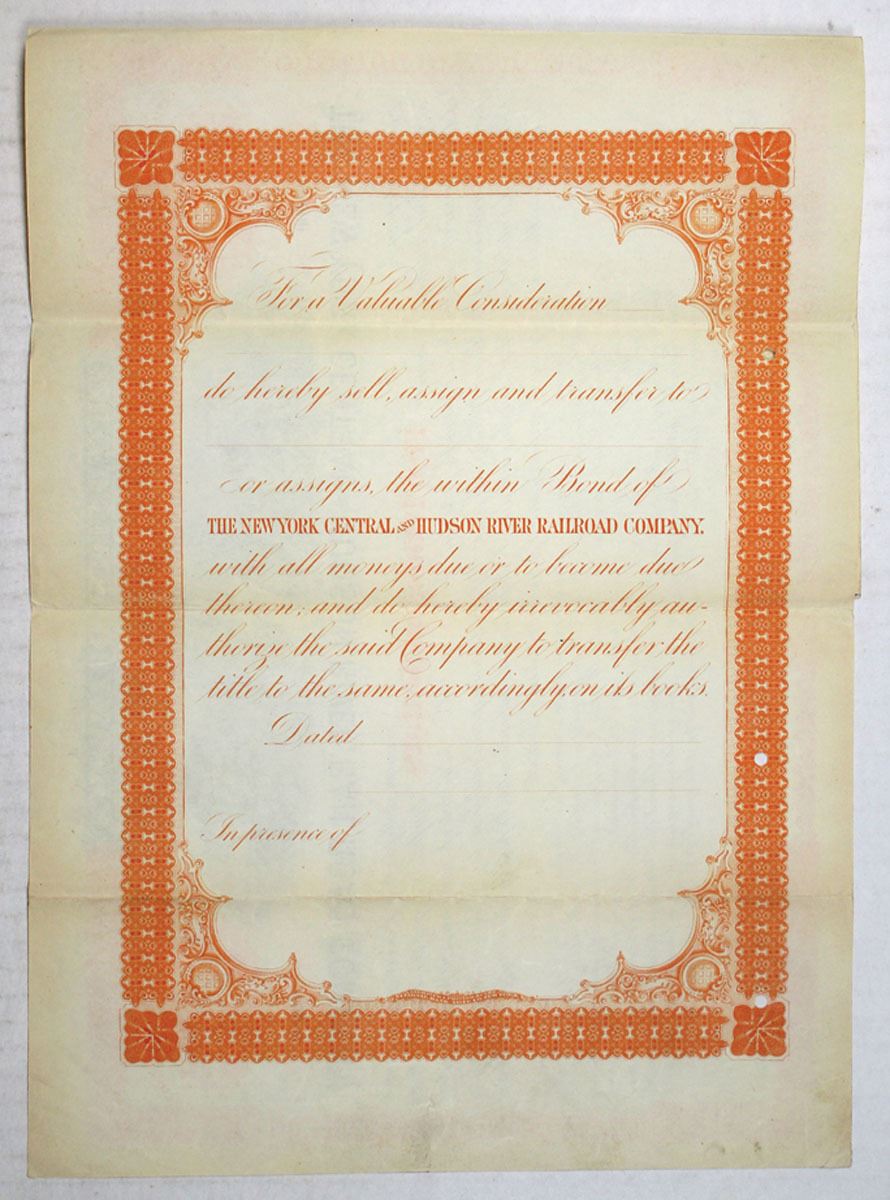 For a Valuable Consideration
do hereby sell, assign and transfer to
or assigns, the within Bond of
THE NEW YORK CENTRAL AND HUDSON RIVER RAILROAD COMPANY.
with all moneys due or to become due
thereon; and do hereby irrevocably au-
thorize the said Company to transfer the
title to the same, accordingly, on its books.
Dated
In presence of